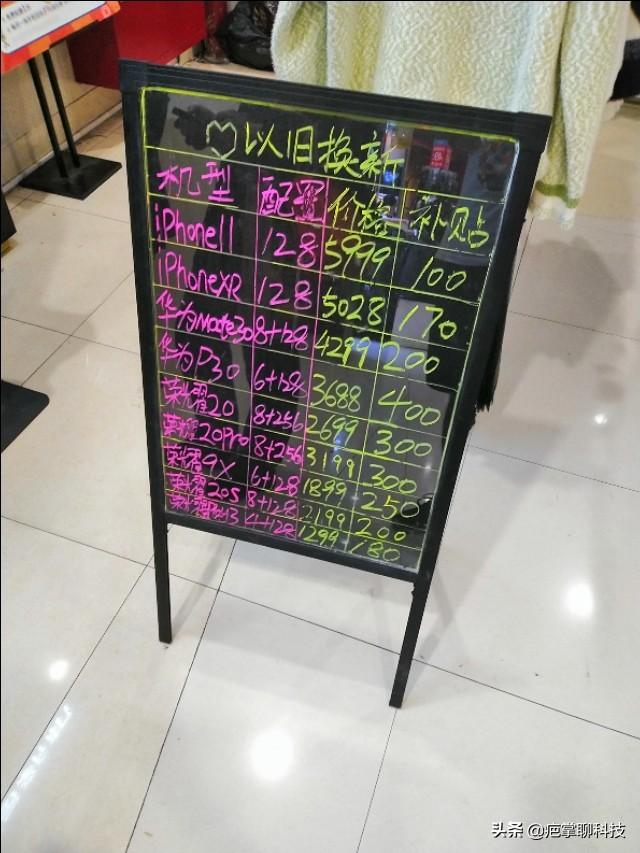 以旧换新
机型 配置 价格 补贴
iPhone11 128 5999 100
iPhoneXR 128 5028 170
华为Mate30 8+128 4299 200
华为P30 6+128 3688 400
荣耀20 8+256 2699 300
荣耀20Pro 8+256 3199 300
荣耀9X 6+128 1899 250
荣耀20S 8+128 2199 200
4+128 1299 180
头条 @疤掌聊科技